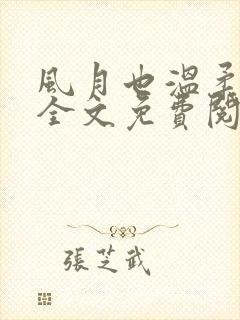 風月也溫柔
全文免費閱
張芝武